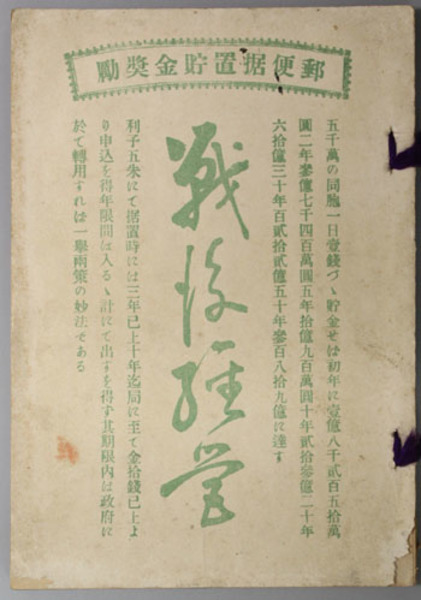 郵便据置貯金奬勵
五千萬の同胞一日壹錢づゝ貯金せは初年に壹億八千貳百五拾萬
圓二年參億七千四百萬圓五年拾億九百萬圓十年貳拾參億二十年
六拾億三十年百貳拾貳億五十年參百八拾九億に達す
戰後經營
利子五朱にて据置時には三年已上十年迄局に至て金拾錢已上よ
り申込を得年限間は入るゝ計にて出すを得ず其期限內は政府に
於て轉用すれは一擧兩策の妙法である